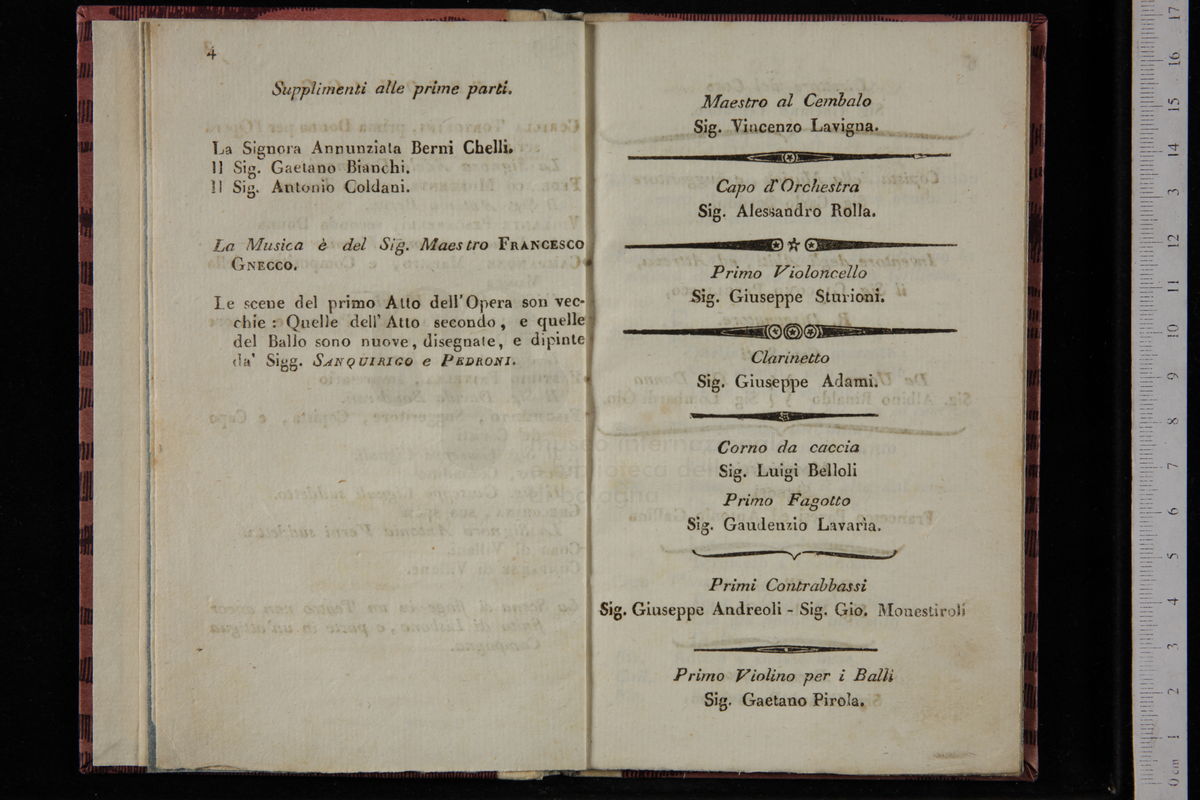 4
Supplimenti alle prime parti.
La Signora Annunziata Berni Chelli.
Il Sig. Gaetano Bianchi.
Il Sig. Antonio Coldani.
La Musica è del Sig. Maestro FRANCESCO
GNECCO.
Le scene del primo Atto dell'Opera son vec-
chie : Quelle dell' Atto secondo, e quelle
del Ballo sono nuove, disegnate, e dipinte
da' Sigg. SANQUIRICO e PEDRONI.
Maestro al Cembalo
Sig. Vincenzo Lavigna.
Capo d'Orchestra
Sig. Alessandro Rolla.
Primo Violoncello
Sig. Giuseppe Sturioni.
Clarinetto
Sig. Giuseppe Adami.
Corno da caccia
Sig. Luigi Belloli
Primo Fagotto
Sig. Gaudenzio Lavaria.
Primi Contrabbassi
Sig. Giuseppe Andreoli - Sig. Gio. Monestiroli
Primo Violino per i Balli
Sig. Gaetano Pirola.
museo internazionale
e biblioteca della
di bologna
0 cm 1 2 3 4 5 6 7 8 9 10 11 12 13 14 15 16 17